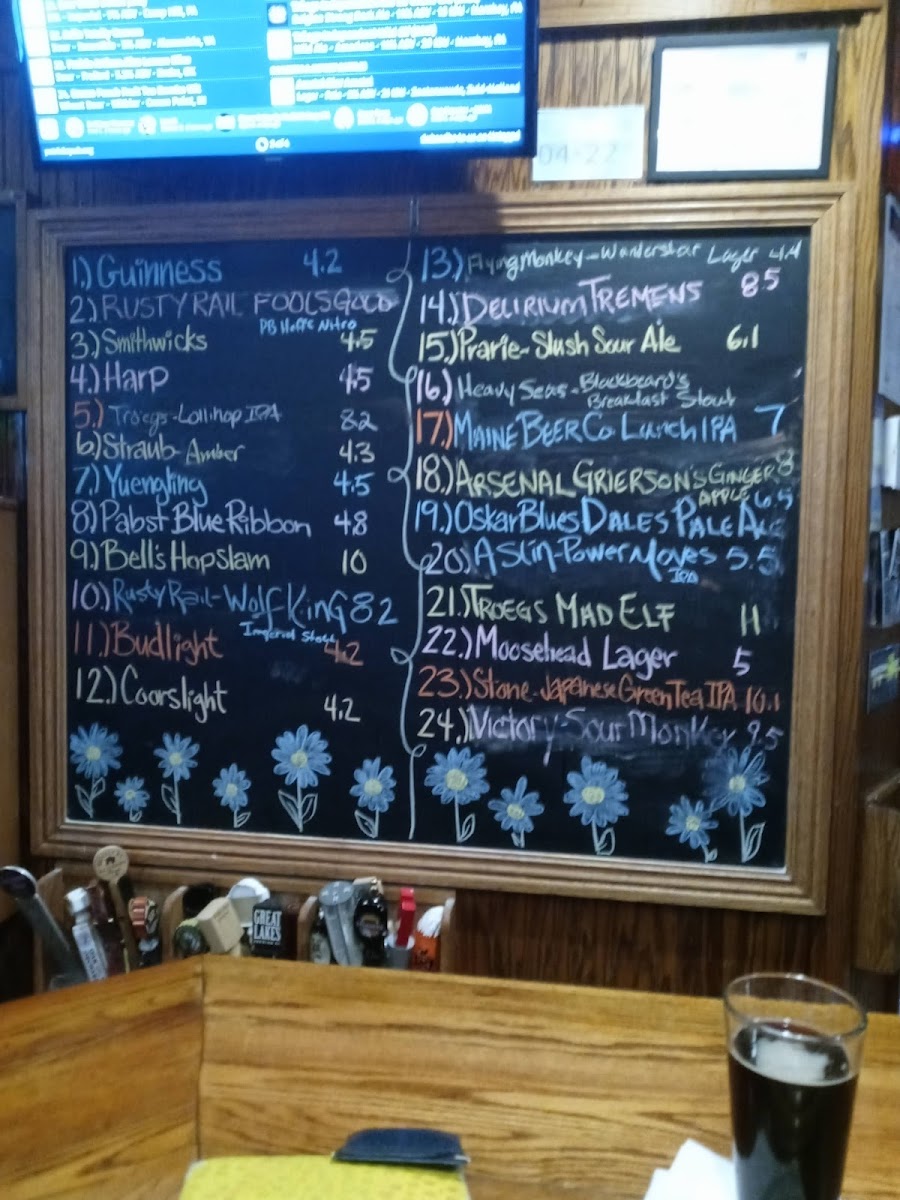 04-22
1.) Guinness 4.2
2) RUSTY RAIL FOOLS GOLD
PB Heffe Nitro
3.) Smithwicks 4.5
4.) Harp 4.5
5.) Troegs-Lollihop IPA 82
6) Straub Amber 4.3
7.) Yuengling 4.5
8) Pabst Blue Ribbon 48
9.) Bell's Hopslam 10
10.) Rusty Rail-Wolf KinG 82
Imperial Stout
11.) Budlight 4.2
12.) Coorslight 4.2
13.) Flying Monkey-Wanderstar Lager 4.4
14.) DELIRIUM TREMENS 85
15.) Prarie-Slush Sour Ale 6.1
16.) Heavy Seas-Blackbeard's
Breakfast Stout
17.) MAINE BEER Co. Lunch IPA 7
18.) ARSENAL GRIERSON'S GINGER 8
APPLE
19.) OskarBlues DALES PALE ALE 6.5
20.) ASlin-Power Moves 5.5
IPA
21.) TROEGS MAD ELF 11
22.) Moosehead Lager 5
23.) Stone-Japanese Green Tea IPA 10.1
24.) Victory-Sour Monkey 9.5
GREAT
LAKES